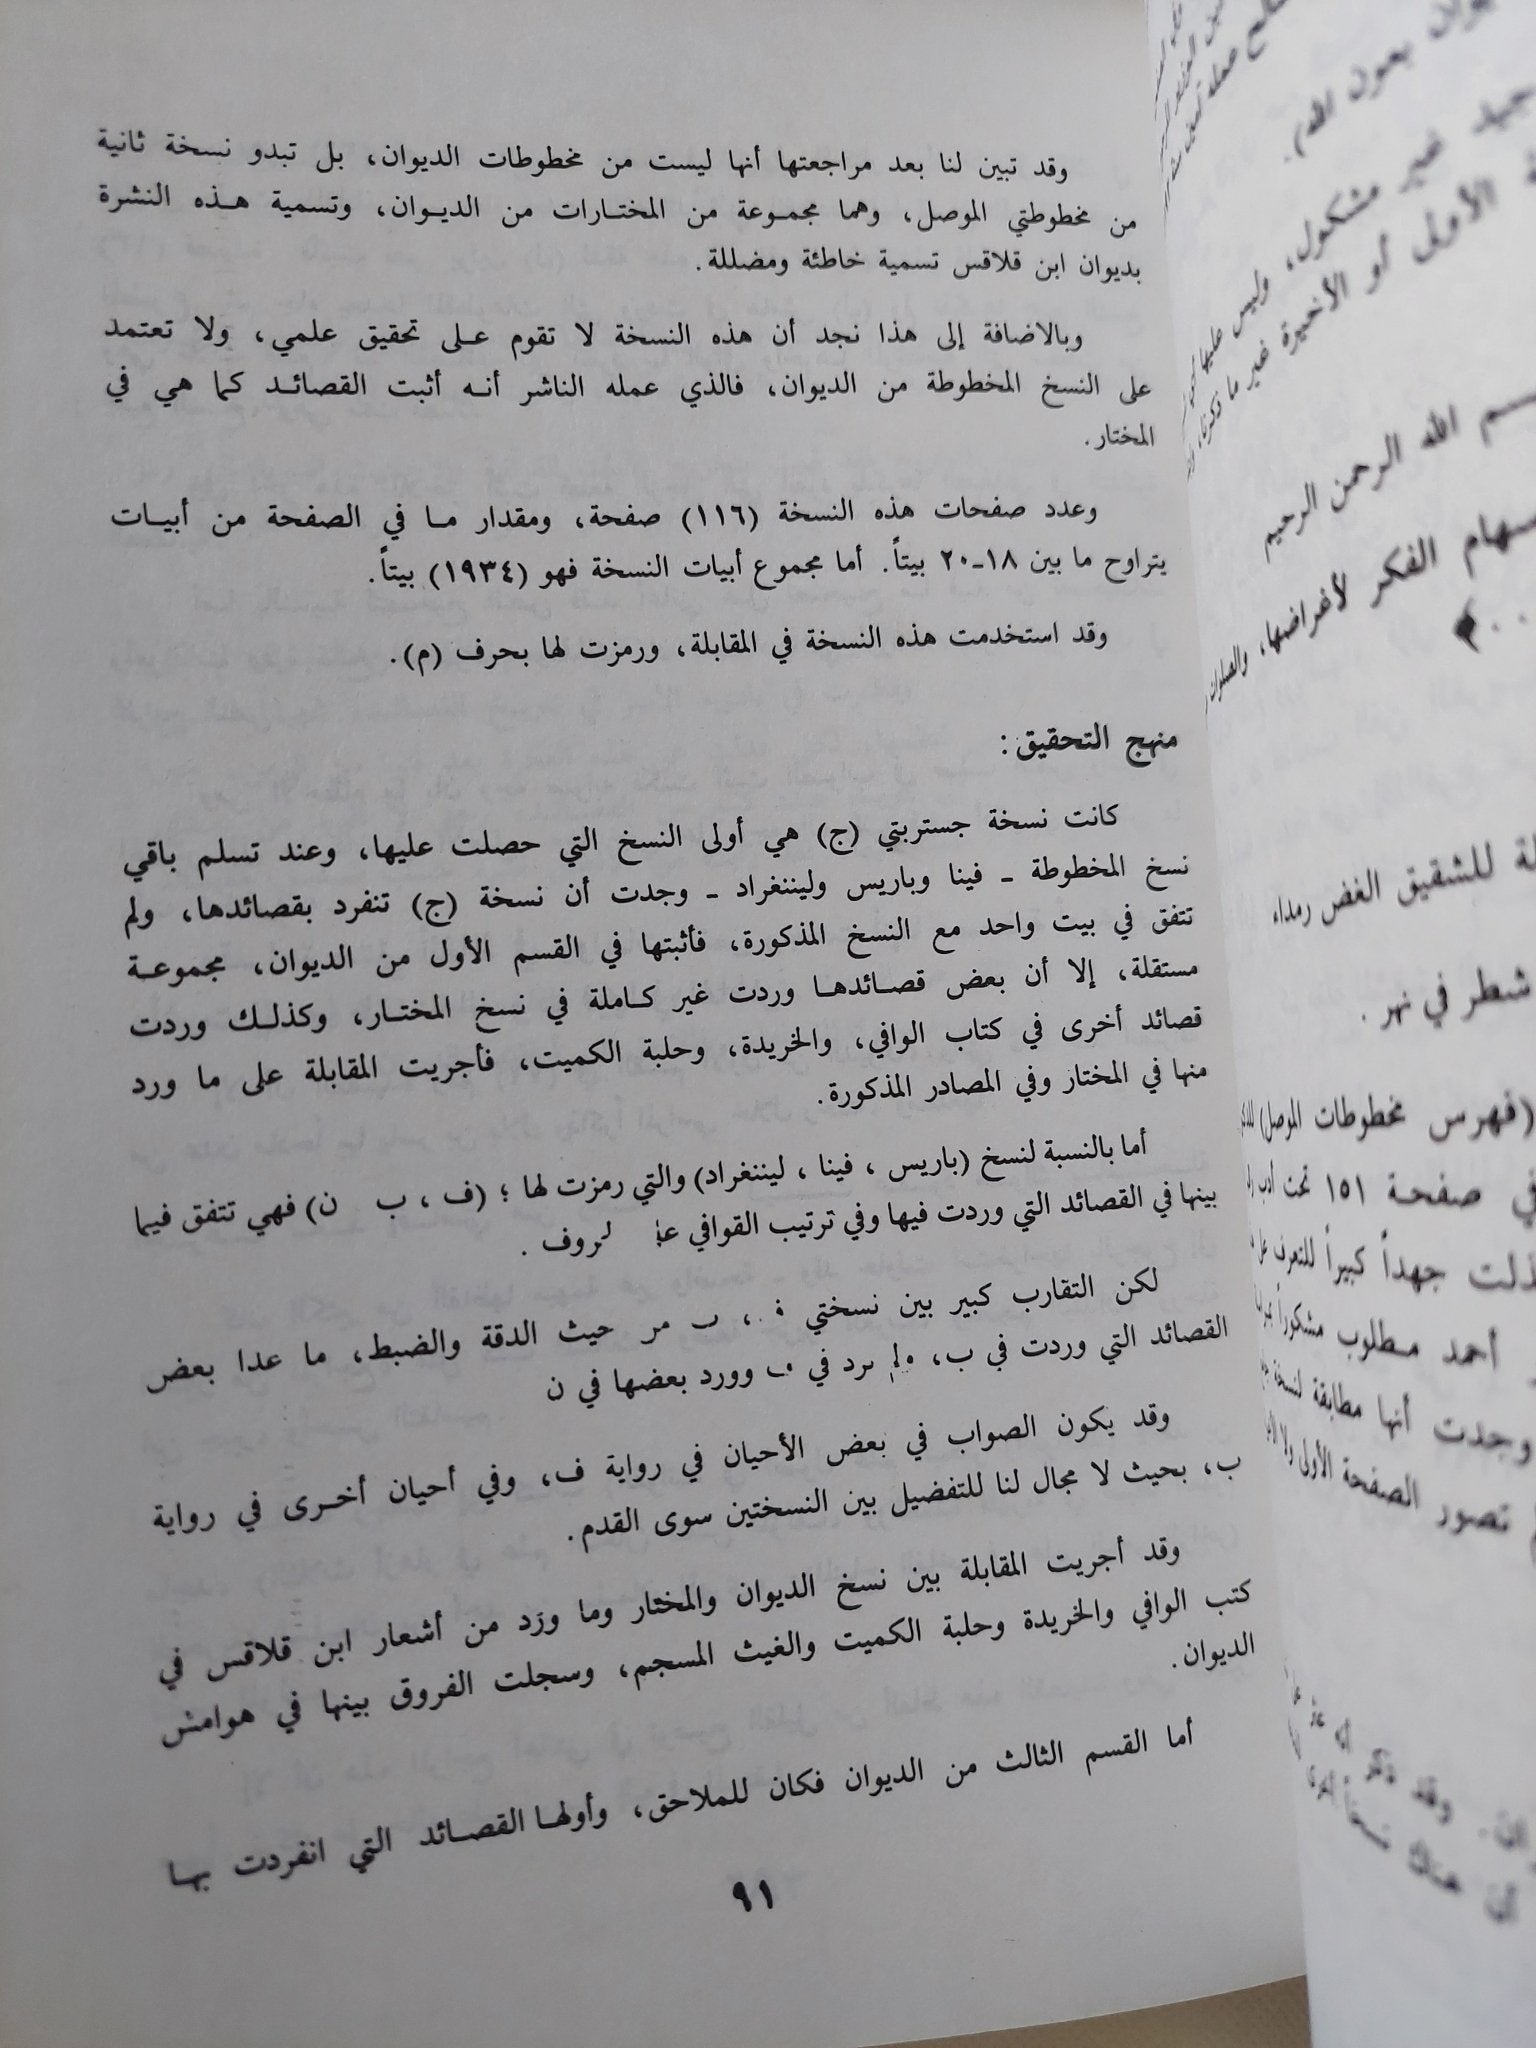 وقد تبين لنا بعد مراجعتها أنها ليست من مخطوطات الديوان، بل تبدو نسخة ثانية
من مخطوطتي الموصل، وهما مجموعة من المختارات من الديوان، وتسمية هذه النشرة
بديوان ابن قلاقس تسمية خاطئة ومضللة.
وبالاضافة إلى هذا نجد أن هذه النسخة لا تقوم على تحقيق علمي، ولا تعتمد
على النسخ المخطوطة من الديوان، فالذي عمله الناشر أنه أثبت القصائد كما هي في
المختار.
وعدد صفحات هذه النسخة (١١٦) صفحة، ومقدار ما في الصفحة من أبيات
يتراوح ما بين ١٨-٢٠ بيتاً. أما مجموع أبيات النسخة فهو (١٩٣٤) بيتاً.
وقد استخدمت هذه النسخة في المقابلة، ورمزت لها بحرف (م).
منهج التحقيق:
كانت نسخة جستربتي (ج) هي أولى النسخ التي حصلت عليها، وعند تسلم باقي
نسخ المخطوطة - فينا وباريس وليننغراد - وجدت أن نسخة (ج) تنفرد بقصائدها، ولم
تتفق في بيت واحد مع النسخ المذكورة، فأثبتها في القسم الأول من الديوان، مجموعة
مستقلة، إلا أن بعض قصائدها وردت غير كاملة في نسخ المختار، وكذلك وردت
قصائد أخرى في كتاب الوافي، والخريدة، وحلبة الكميت، فأجريت المقابلة على ما ورد
منها في المختار وفي المصادر المذكورة.
أما بالنسبة لنسخ (باريس ، فينا ، ليننغراد) والتي رمزت لها ؛ (ف ، ب ن) فهي تتفق فيما
بينها في القصائد التي وردت فيها وفي ترتيب القوافي .
لكن التقارب كبير بين نسختي ، حيث الدقة والضبط، ما عدا بعض
القصائد التي وردت في ب، في وورد بعضها في ن
وقد يكون الصواب في بعض الأحيان في رواية ف، وفي أحيان أخرى في رواية
ب، بحيث لا مجال لنا للتفضيل بين النسختين سوى القدم.
وقد أجريت المقابلة بين نسخ الديوان والمختار وما ورد من أشعار ابن قلاقس في
كتب الوافي والخريدة وحلبة الكميت والغيث المسجم، وسجلت الفروق بينها في هوامش
الديوان.
أما القسم الثالث من الديوان فكان للملاحق، وأولها القصائد التي انفردت بها
٩١
بعون الله).
غير مشكول، وليس عليها
الأولى أو الأخيرة غير ما ذكرنا،
الله الرحمن الرحيم
الفكر لأغراضها، والصلوات
للشقيق الغض رمداء
شطر في نهر .
(فهرس مخطوطات الموصل)
صفحة ١٥١ تحت
جهداً كبيراً للتعرف
أحمد مطلوب مشكوراً
وجدت أنها مطابقة لنسخة
تصور الصفحة الأولى ولا
وقد ذكر
أن هناك